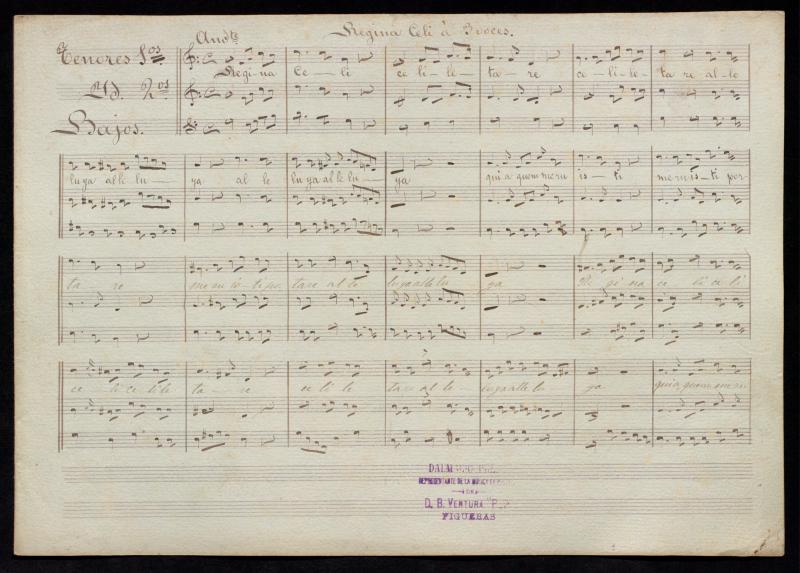 Regina Celi à 3 voces.
Andte
Tenores 1os
Id. 2os
Bajos.
Regi-na Ce-li ce li-le-ta-re ce-li-le-ta re al-le
luya al le lu-ya al le luya al le lu-ya qui a quem me ru is-ti meruis-ti por
ta-re meruis-ti por tare al le luya alle lu ya Re gi-na ce li ce li
ce li ce li le ta re ce li le tare al le luya alle lu ya quia quem meru
DALMAU
REPRESENTANTE DE LA
D. B. VENTURA
FIGUERAS